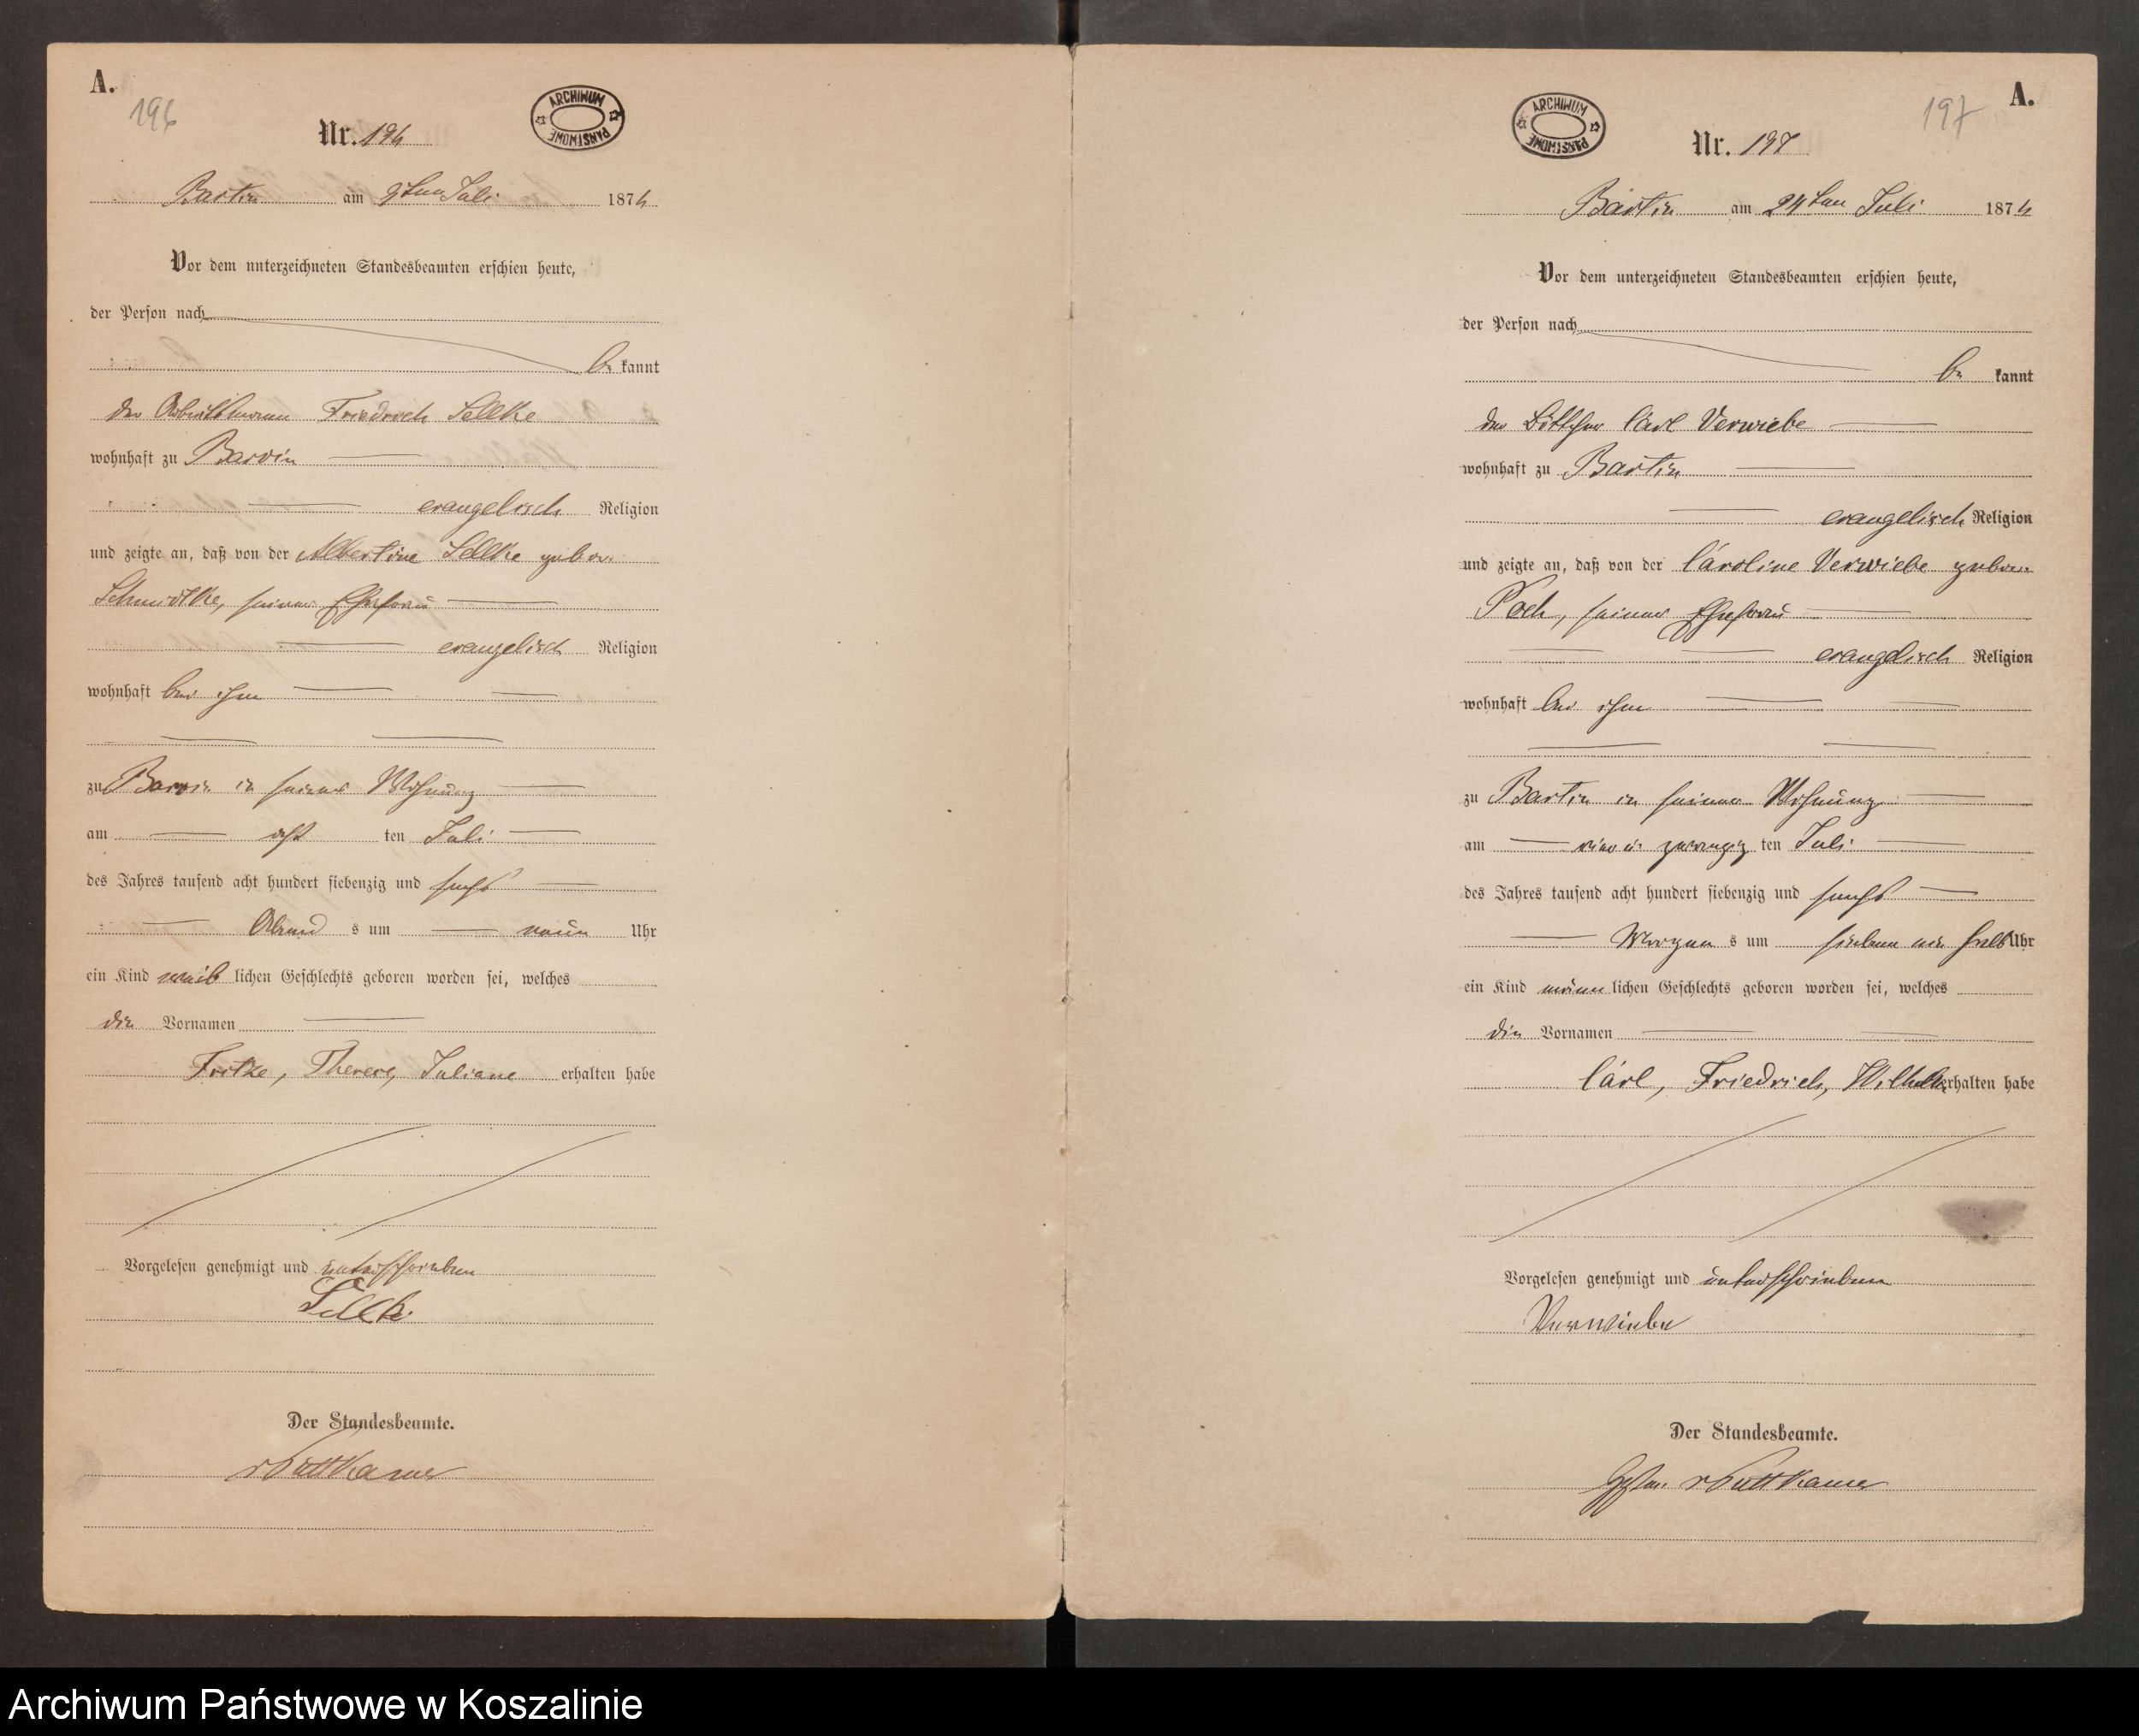 A.
196
Nr. 196
ARCHIWUM PAŃSTWOWE
Bartin am 9ten Juli 1876
Vor dem unterzeichneten Standesbeamten erschien heute,
der Person nach
be kannt
der Arbeitsmann Friedrich Sellke
wohnhaft zu Barvin
evangelisch Religion
und zeigte an, daß von der Albertine Sellke gebor.
Schmidtke, seiner Ehefrau
evangelisch Religion
wohnhaft bei ihm
zu Barvin in seiner Wohnung
am acht ten Juli
des Jahres tausend acht hundert siebenzig und sechs
Abend s um neun Uhr
ein Kind weib lichen Geschlechts geboren worden sei, welches
die Vornamen
Therese, Juliane erhalten habe
Vorgelesen genehmigt und unterschrieben
Sellke
Der Standesbeamte.
v Puttkamer
A.
197
Nr. 197
ARCHIWUM PAŃSTWOWE
Bartin am 24ten Juli 1876
Vor dem unterzeichneten Standesbeamten erschien heute,
der Person nach
be kannt
der Böttcher Carl Verwiebe
wohnhaft zu Bartin
evangelisch Religion
und zeigte an, daß von der Caroline Verwiebe geboren
seiner Ehefrau
evangelisch Religion
wohnhaft bei ihm
zu Bartin in seiner Wohnung
am vier u zwanzig ten Juli
des Jahres tausend acht hundert siebenzig und sechs
Morgen s um sieben ein halb Uhr
ein Kind männ lichen Geschlechts geboren worden sei, welches
die Vornamen
Carl, Friedrich, Wilhelm erhalten habe
Vorgelesen genehmigt und unterschrieben
Verwiebe
Der Standesbeamte.
v Puttkamer
Archiwum Państwowe w Koszalinie